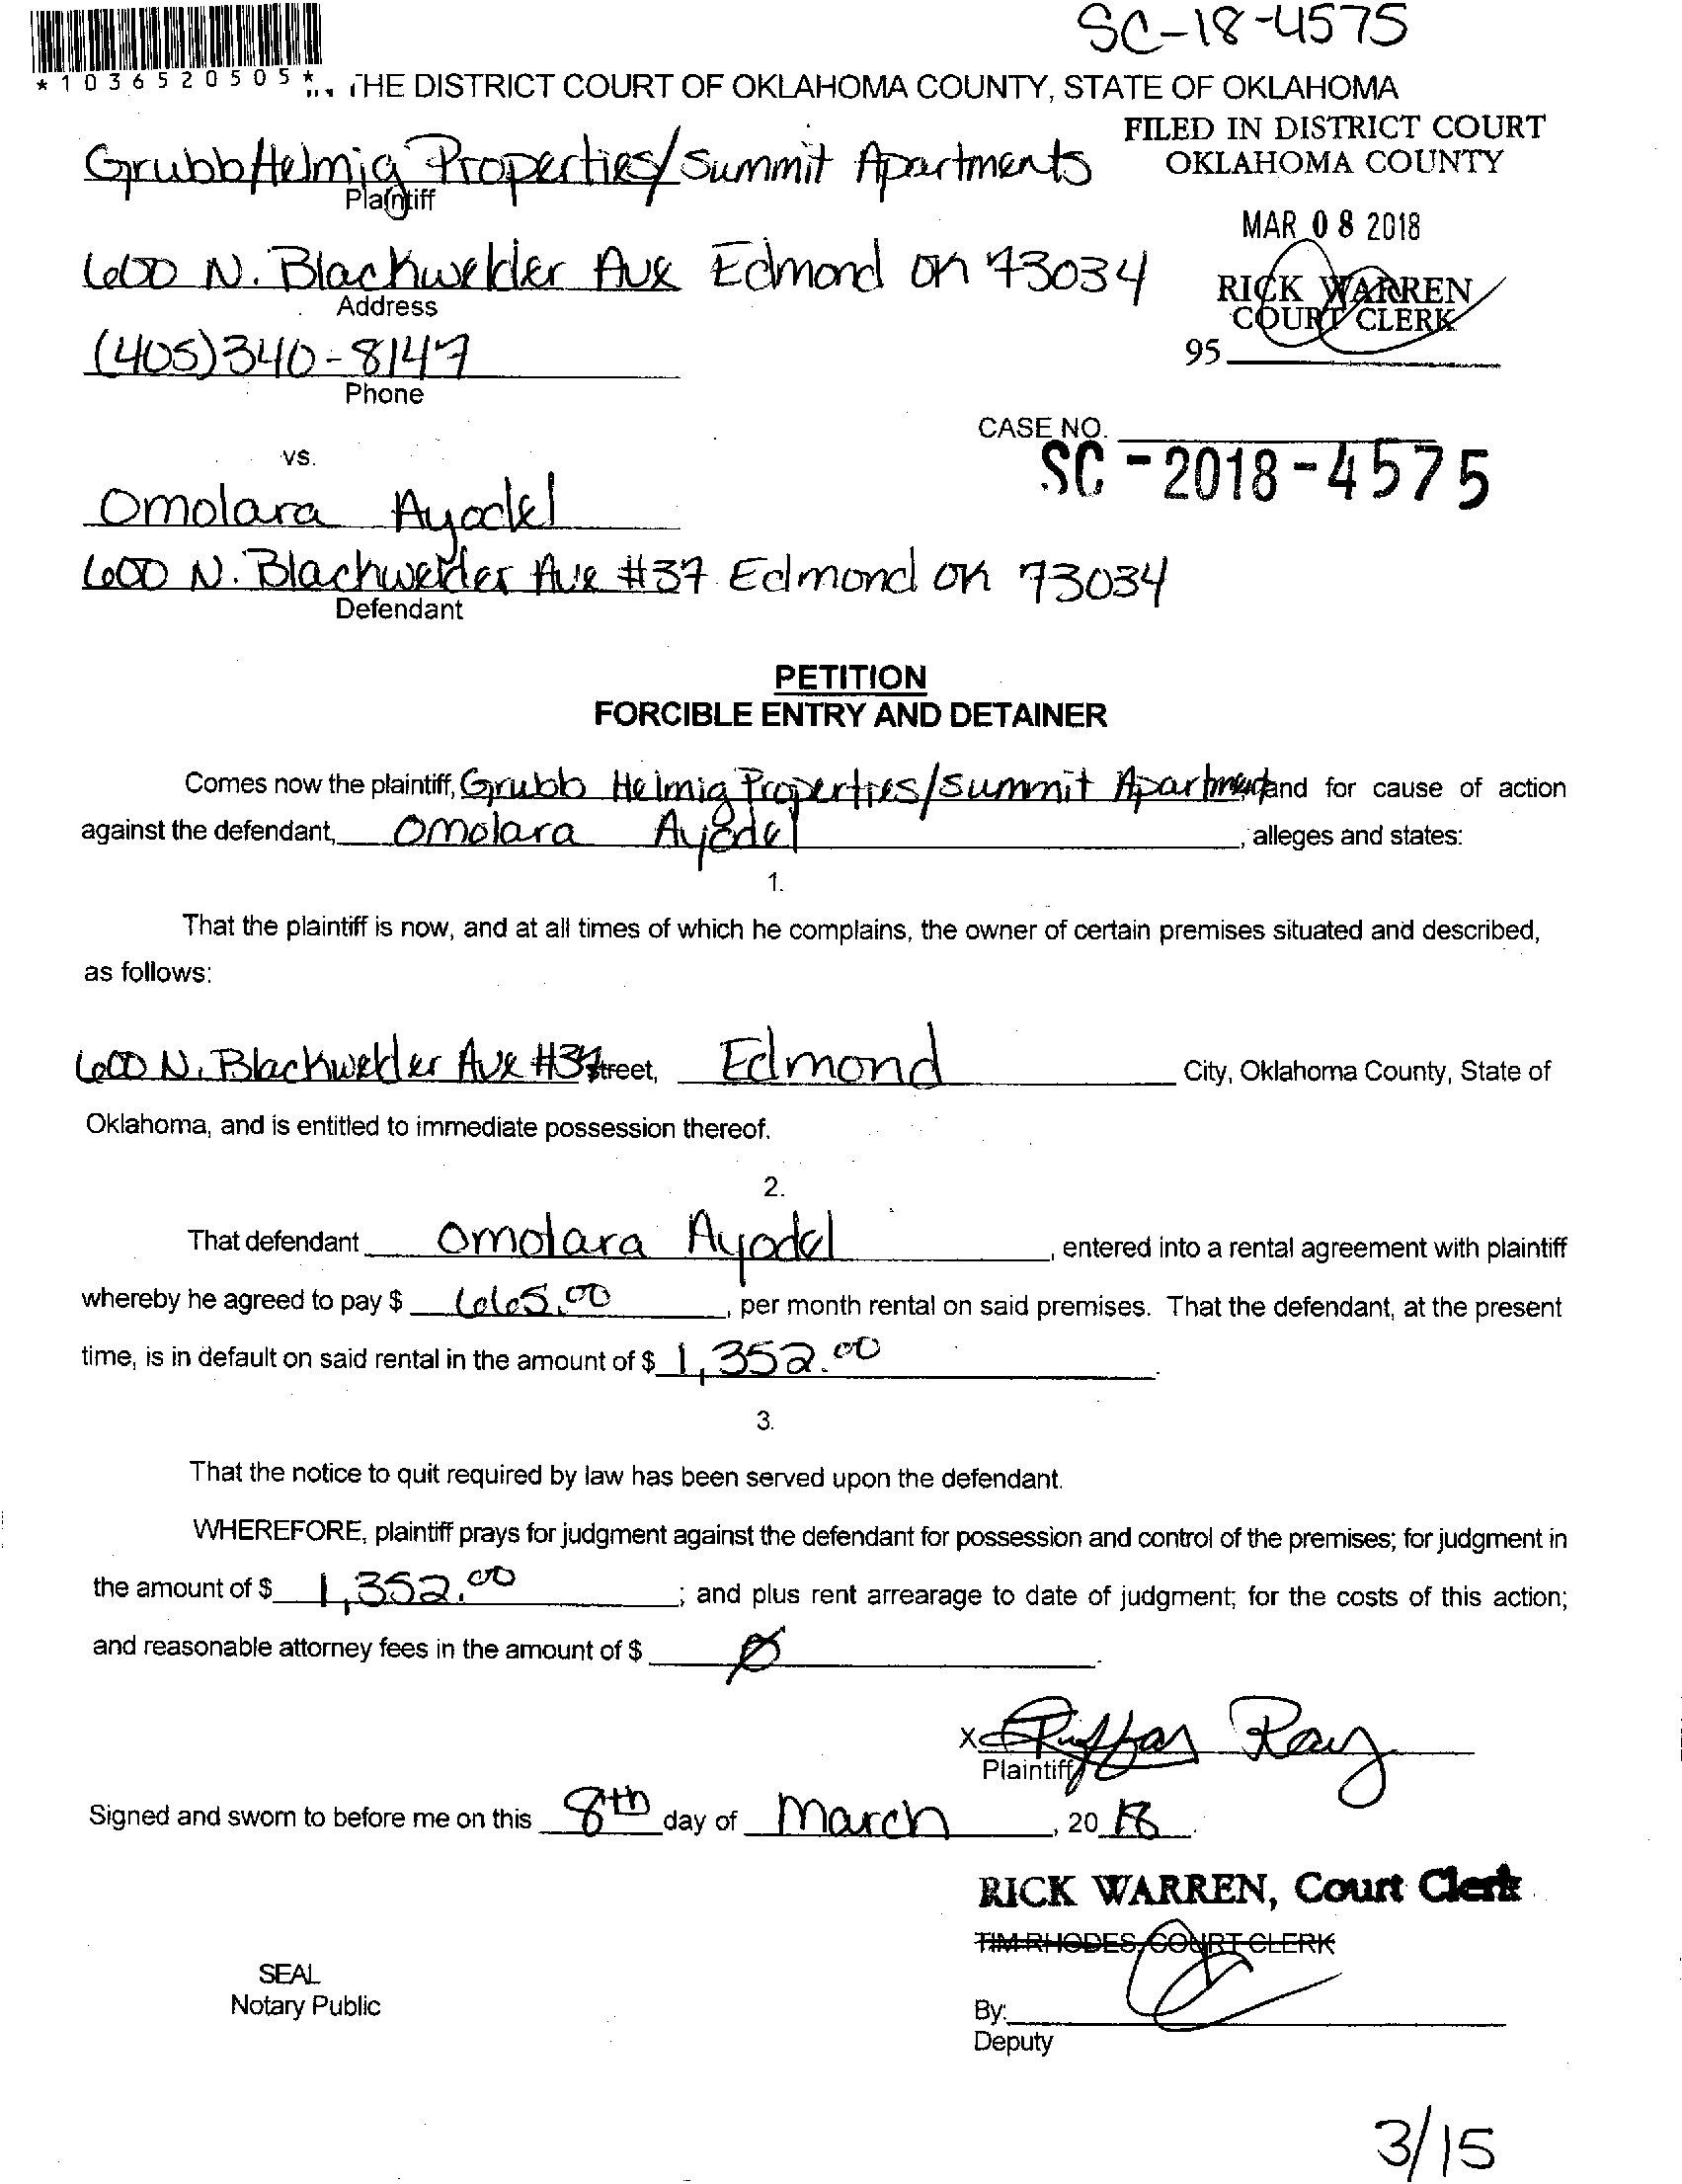 SC-18-4575
*1036520505*
THE DISTRICT COURT OF OKLAHOMA COUNTY, STATE OF OKLAHOMA
FILED IN DISTRICT COURT
OKLAHOMA COUNTY
Grubb Helmig Properties/Summit Apartments
Plaintiff
MAR 08 2018
600 N. Blackwelder Ave Edmond OK 73034
Address
RICK WARREN
COURT CLERK
(405)340-8147
95
Phone
CASE NO.
SC-2018-4575
vs.
Omolara Ayodel
600 N. Blackwelder Ave #37 Edmond OK 73034
Defendant
PETITION
FORCIBLE ENTRY AND DETAINER
Comes now the plaintiff, Grubb Helmig Properties/Summit Apartment and for cause of action
against the defendant, Omolara Ayodel, alleges and states:
1.
That the plaintiff is now, and at all times of which he complains, the owner of certain premises situated and described,
as follows:
600 N. Blackwelder Ave #37 Street, Edmond City, Oklahoma County, State of
Oklahoma, and is entitled to immediate possession thereof.
2.
That defendant Omolara Ayodel, entered into a rental agreement with plaintiff
whereby he agreed to pay $ 665.00, per month rental on said premises. That the defendant, at the present
time, is in default on said rental in the amount of $ 1,352.00.
3.
That the notice to quit required by law has been served upon the defendant.
WHEREFORE, plaintiff prays for judgment against the defendant for possession and control of the premises; for judgment in
the amount of $ 1,352.00; and plus rent arrearage to date of judgment; for the costs of this action;
and reasonable attorney fees in the amount of $ Ø.
X Ray
Plaintiff
Signed and sworn to before me on this 8th day of March, 2018.
RICK WARREN, Court Clerk
TIM RHODES, COURT CLERK
SEAL
Notary Public
By:
Deputy
3/15